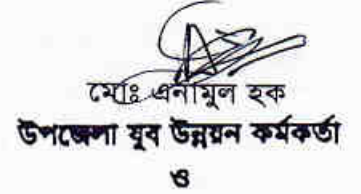 মোঃ এনামুল হক
উপজেলা যুব উন্নয়ন কর্মকর্তা
ও